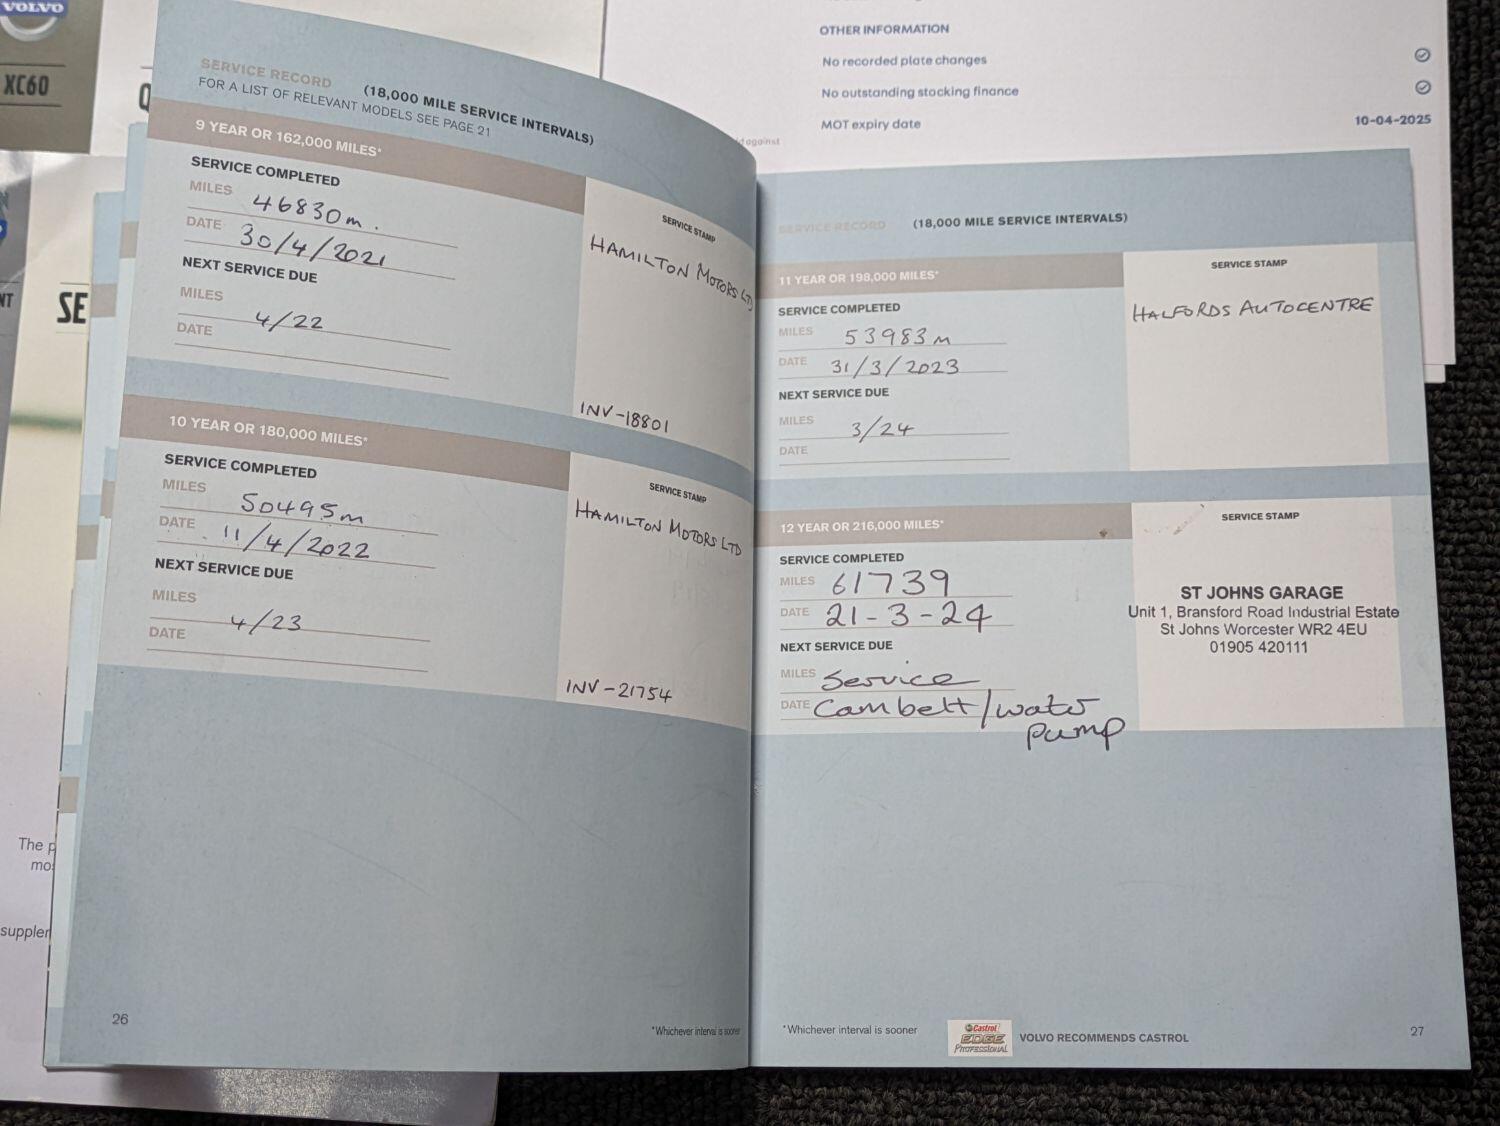 VOLVO
XC60
Q
NT
SE
The p
mo
supplem
OTHER INFORMATION
No recorded plate changes
No outstanding stocking finance
MOT expiry date
10-04-2025
against
SERVICE RECORD (18,000 MILE SERVICE INTERVALS)
FOR A LIST OF RELEVANT MODELS SEE PAGE 21
9 YEAR OR 162,000 MILES*
SERVICE COMPLETED
MILES 46830m.
DATE 30/4/2021
NEXT SERVICE DUE
MILES 4/22
DATE
SERVICE STAMP
HAMILTON MOTORS LTD
INV-18801
10 YEAR OR 180,000 MILES*
SERVICE COMPLETED
MILES 50495m
DATE 11/4/2022
NEXT SERVICE DUE
MILES
4/23
DATE
SERVICE STAMP
HAMILTON MOTORS LTD
INV-21754
26
*Whichever interval is sooner
SERVICE RECORD (18,000 MILE SERVICE INTERVALS)
11 YEAR OR 198,000 MILES*
SERVICE COMPLETED
MILES 53983m
DATE 31/3/2023
NEXT SERVICE DUE
MILES 3/24
DATE
SERVICE STAMP
HALFORDS AUTOCENTRE
12 YEAR OR 216,000 MILES*
SERVICE COMPLETED
MILES 61739
DATE 21-3-24
NEXT SERVICE DUE
MILES Service
DATE Cambelt/water
pump
SERVICE STAMP
ST JOHNS GARAGE
Unit 1, Bransford Road Industrial Estate
St Johns Worcester WR2 4EU
01905 420111
*Whichever interval is sooner
Castrol
EDGE
PROFESSIONAL
VOLVO RECOMMENDS CASTROL
27